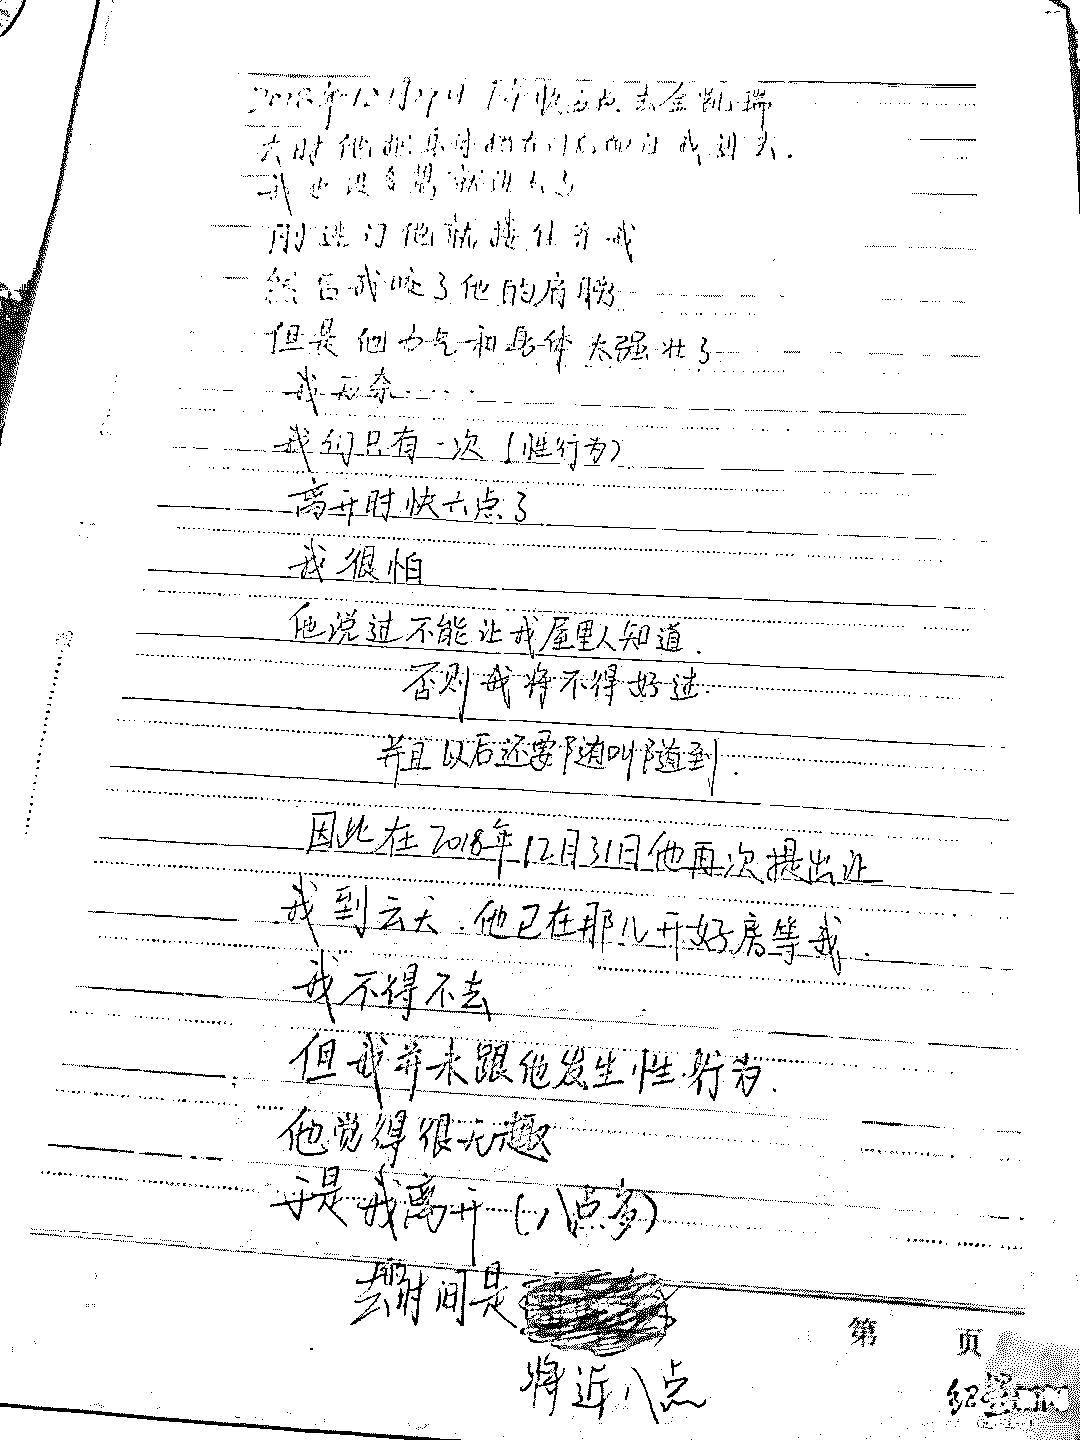 2018年12月29日下午快五点去金凯瑞
去时他把
我也没多想就进去了
刚进门他就搂住了我
然后我咬了他的肩膀
但是他力气和身体太强壮了
我无奈……
我们只有一次（性行为）
离开时快六点了
我很怕
他说过不能让我屋里人知道.
否则我将不得好过.
并且以后还要随叫随到.
因此在2018年12月31日他再次提出让
我到云天.他已在那儿开好房等我.
我不得不去
但我并未跟他发生性行为.
他觉得很无趣
于是我离开(八点多)
去时间是
将近八点
第 页
红星